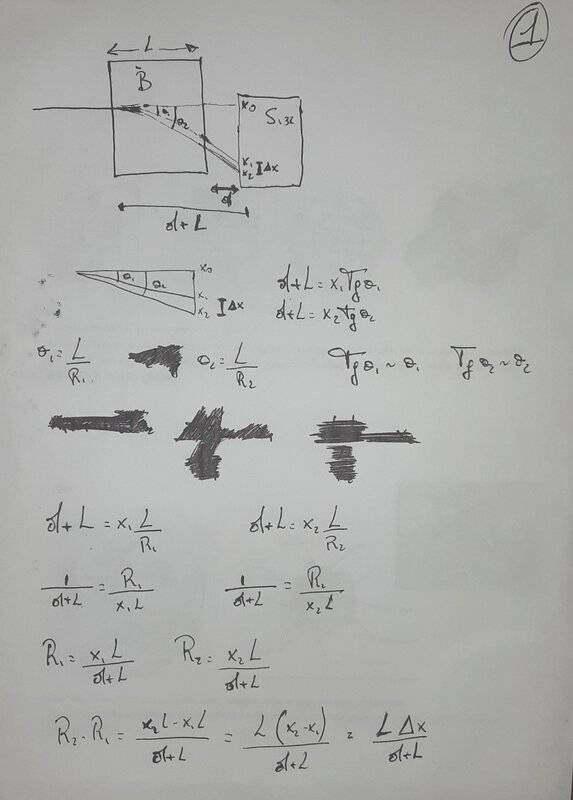 1
L
B
x₀
θ₁
θ₂
x₁
x₂
Δx
d
d+L
x₀
θ₁ θ₂
x₁
x₂ Δx
d+L = x₁ Tg θ₁
d+L = x₂ Tg θ₂
θ₁ = L/R₁ θ₂ = L/R₂ Tg θ₁ ~ θ₁ Tg θ₂ ~ θ₂
d+L = x₁ L/R₁ d+L = x₂ L/R₂
1/(d+L) = R₁/(x₁L) 1/(d+L) = R₂/(x₂L)
R₁ = x₁L/(d+L) R₂ = x₂L/(d+L)
R₂ - R₁ = (x₂L - x₁L)/(d+L) = L(x₂-x₁)/(d+L) = LΔx/(d+L)